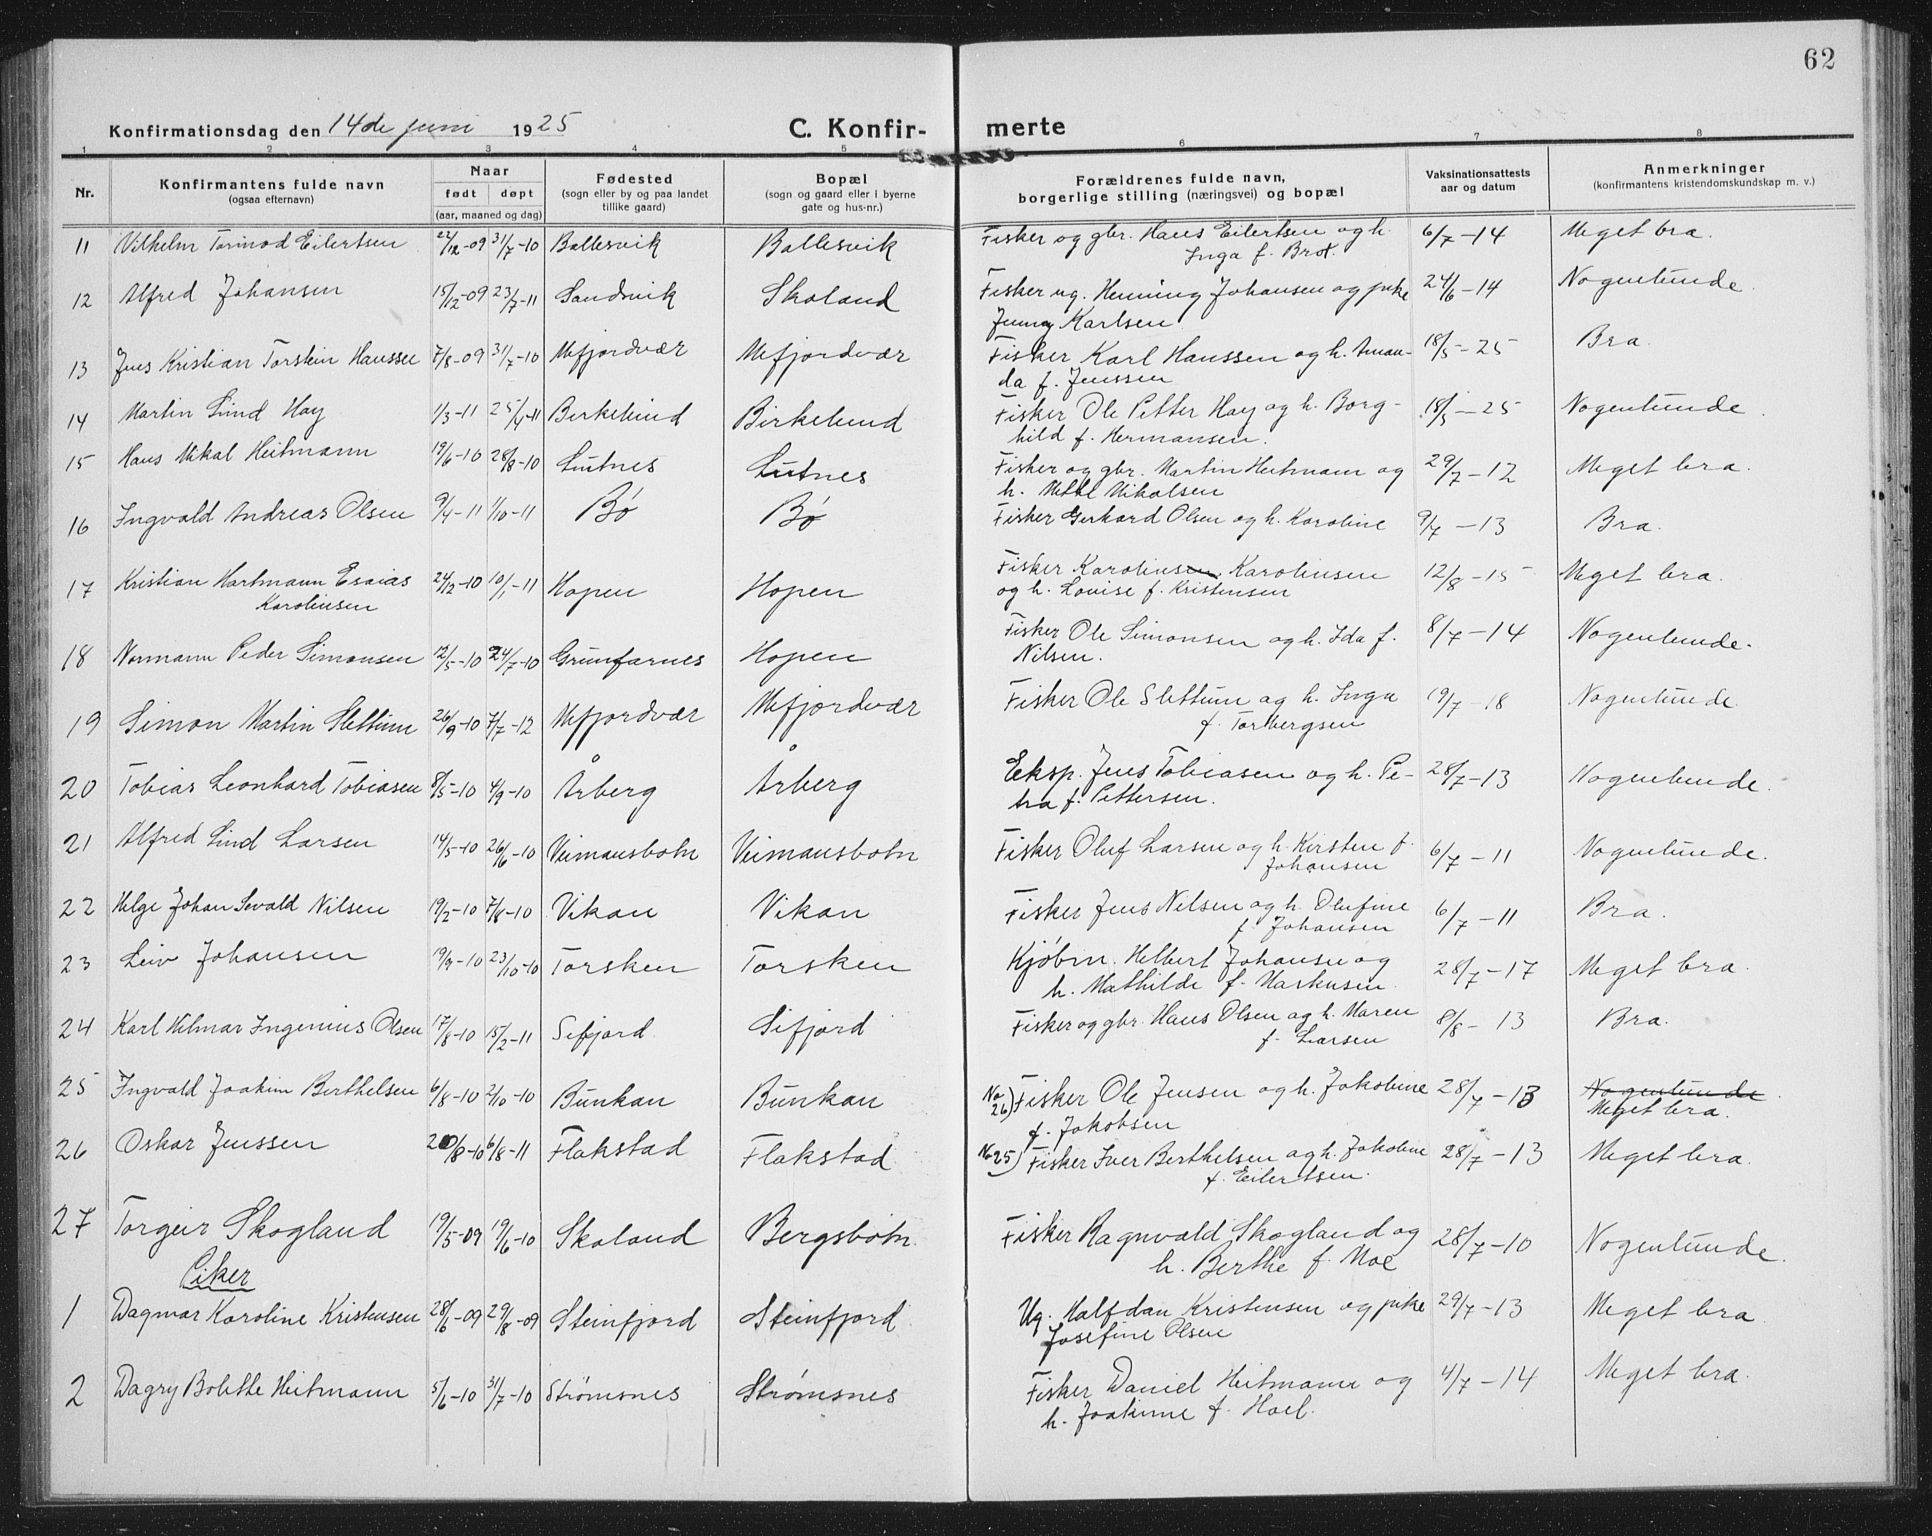 62
Konfirmationsdag den 14de juni 1925 C. Konfir- merte
1 2 3 4 5 6 7 8
Nr. Konfirmantens fulde navn (ogsaa efternavn) Naar født døpt (aar, maaned og dag) Fødested (sogn eller by og paa landet tillike gaard) Bopæl (sogn og gaard eller i byerne gate og hus-nr.) Forældrenes fulde navn, borgerlige stilling (næringsvei) og bopæl Vaksinationsattests aar og datum Anmerkninger (konfirmantens kristendomskundskap m. v.)
11 Vilhelm Tormod Eilertsen 22/12-09 31/7-10 Ballesvik Ballesvik Fisker og gbr. Hans Eilertsen og h. 6/7-14 Meget bra.
Inga f. Brox.
12 Alfred Johansen 15/12-09 23/7-11 Sandvik Skaland Fisker ug. Henning Johansen og pike 24/6-14 Nogenlunde
Jenny Karlsen
13 Jens Kristian Torstein Hanssen 7/8-09 31/7-10 Mefjordvær Mefjordvær Fisker Karl Hanssen og h. Aman- 18/5-25 Bra.
da f. Jenssen
14 Martin Lind Hay 1/3-11 25/4-11 Berkelund Birkelund Fisker Ole Petter Hay og h. Borg- 18/5-25 Nogenlunde.
hild f. Hermansen.
15 Hans Mikal Heitmann 19/6-10 28/8-10 Lutnes Lutnes Fisker og gbr. Martin Heitmann og 29/7-12 Meget bra.
h. Mette Mikalsen
16 Ingvald Andreas Olsen 9/4-11 1/10-11 Bø Bø Fisker Gerhard Olsen og h. Karoline 9/7-13 Bra.
17 Kristian Hartmann Esaias 24/12-10 10/1-11 Hopen Hopen Fisker Karolinsen Karolinsen 12/8-15 Meget bra.
Karolinsen og h. Lovise f. Kristensen
18 Normann Peder Simonsen 12/5-10 24/7-10 Grunfarnes Hopen Fisker Ole Simonsen og h. Ida f. 8/7-14 Nogenlunde.
Nilsen.
19 Simon Martin Slettum 26/9-10 7/7-12 Mefjordvær Mefjordvær Fisker Ole Slettum og h. Inga 19/7-18 Nogenlunde
f. Torbergsen
20 Tobias Leonhard Tobiasen 8/5-10 4/9-10 Årberg Årberg Eksp. Jens Tobiasen og h. Pe- 28/7-13 Nogenlunde.
tra f. Pettersen.
21 Alfred Lind Larsen 14/5-10 26/6-10 Veimansbotn Veimansbotn Fisker Oluf Larsen og h. Kirsten f. 6/7-11 Nogenlunde.
Johansen
22 Helge Johan Sevald Nilsen 19/2-10 7/8-10 Vikan Vikan Fisker Jens Nilsen og h. Olufine 6/7-11 Bra.
f. Johansen
23 Leiv Johansen 19/9-10 23/10-10 Torsken Torsken Kjøbm. Helbert Johansen og 28/7-17 Meget bra.
h. Mathilde f. Markusen.
24 Karl Hilmar Ingenius Olsen 17/8-10 15/2-11 Sifjord Sifjord Fisker og gbr. Hans Olsen og h. Maren 8/8-13 Bra.
f. Larsen
25 Ingvald Joakim Berthelsen 6/8-10 2/10-10 Bunkan Bunkan No 26) Fisker Ole Jensen og h. Jakobine 28/7-13 Nogenlunde
f. Jakobsen Meget bra.
26 Oskar Jenssen 20/8-10 6/8-11 Flakstad Flakstad No 25) Fisker Iver Berthelsen og h. Jakobine 28/7-13 Meget bra.
f. Eilertsen.
27 Torgeir Skogland 19/5-09 19/6-10 Skaland Bergsbotn. Fisker Ragnvald Skogland og 28/7-10 Nogenlunde.
h. Berthe f. Moe
Piker
1 Dagmar Karoline Kristensen 28/6-09 29/8-09 Steinfjord Steinfjord Ug. Halfdan Kristensen og pike 29/7-13 Meget bra
Josefine Olsen
2 Dagny Bolette Heitmann 5/6-10 31/7-10 Strømsnes Strømsnes Fisker Daniel Heitmann og 4/7-14 Meget bra.
h. Joakime f. Hoel.